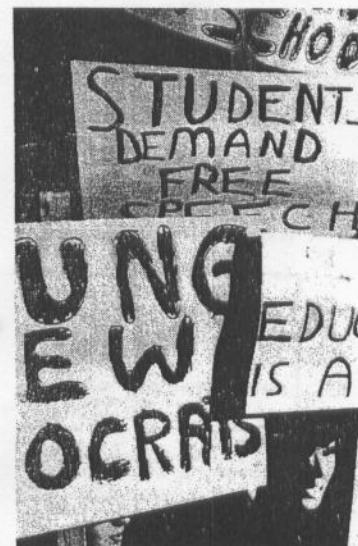 STUDENTS
DEMAND
FREE
SPEECH
UNG
EW
OCRATS
EDUC
IS A